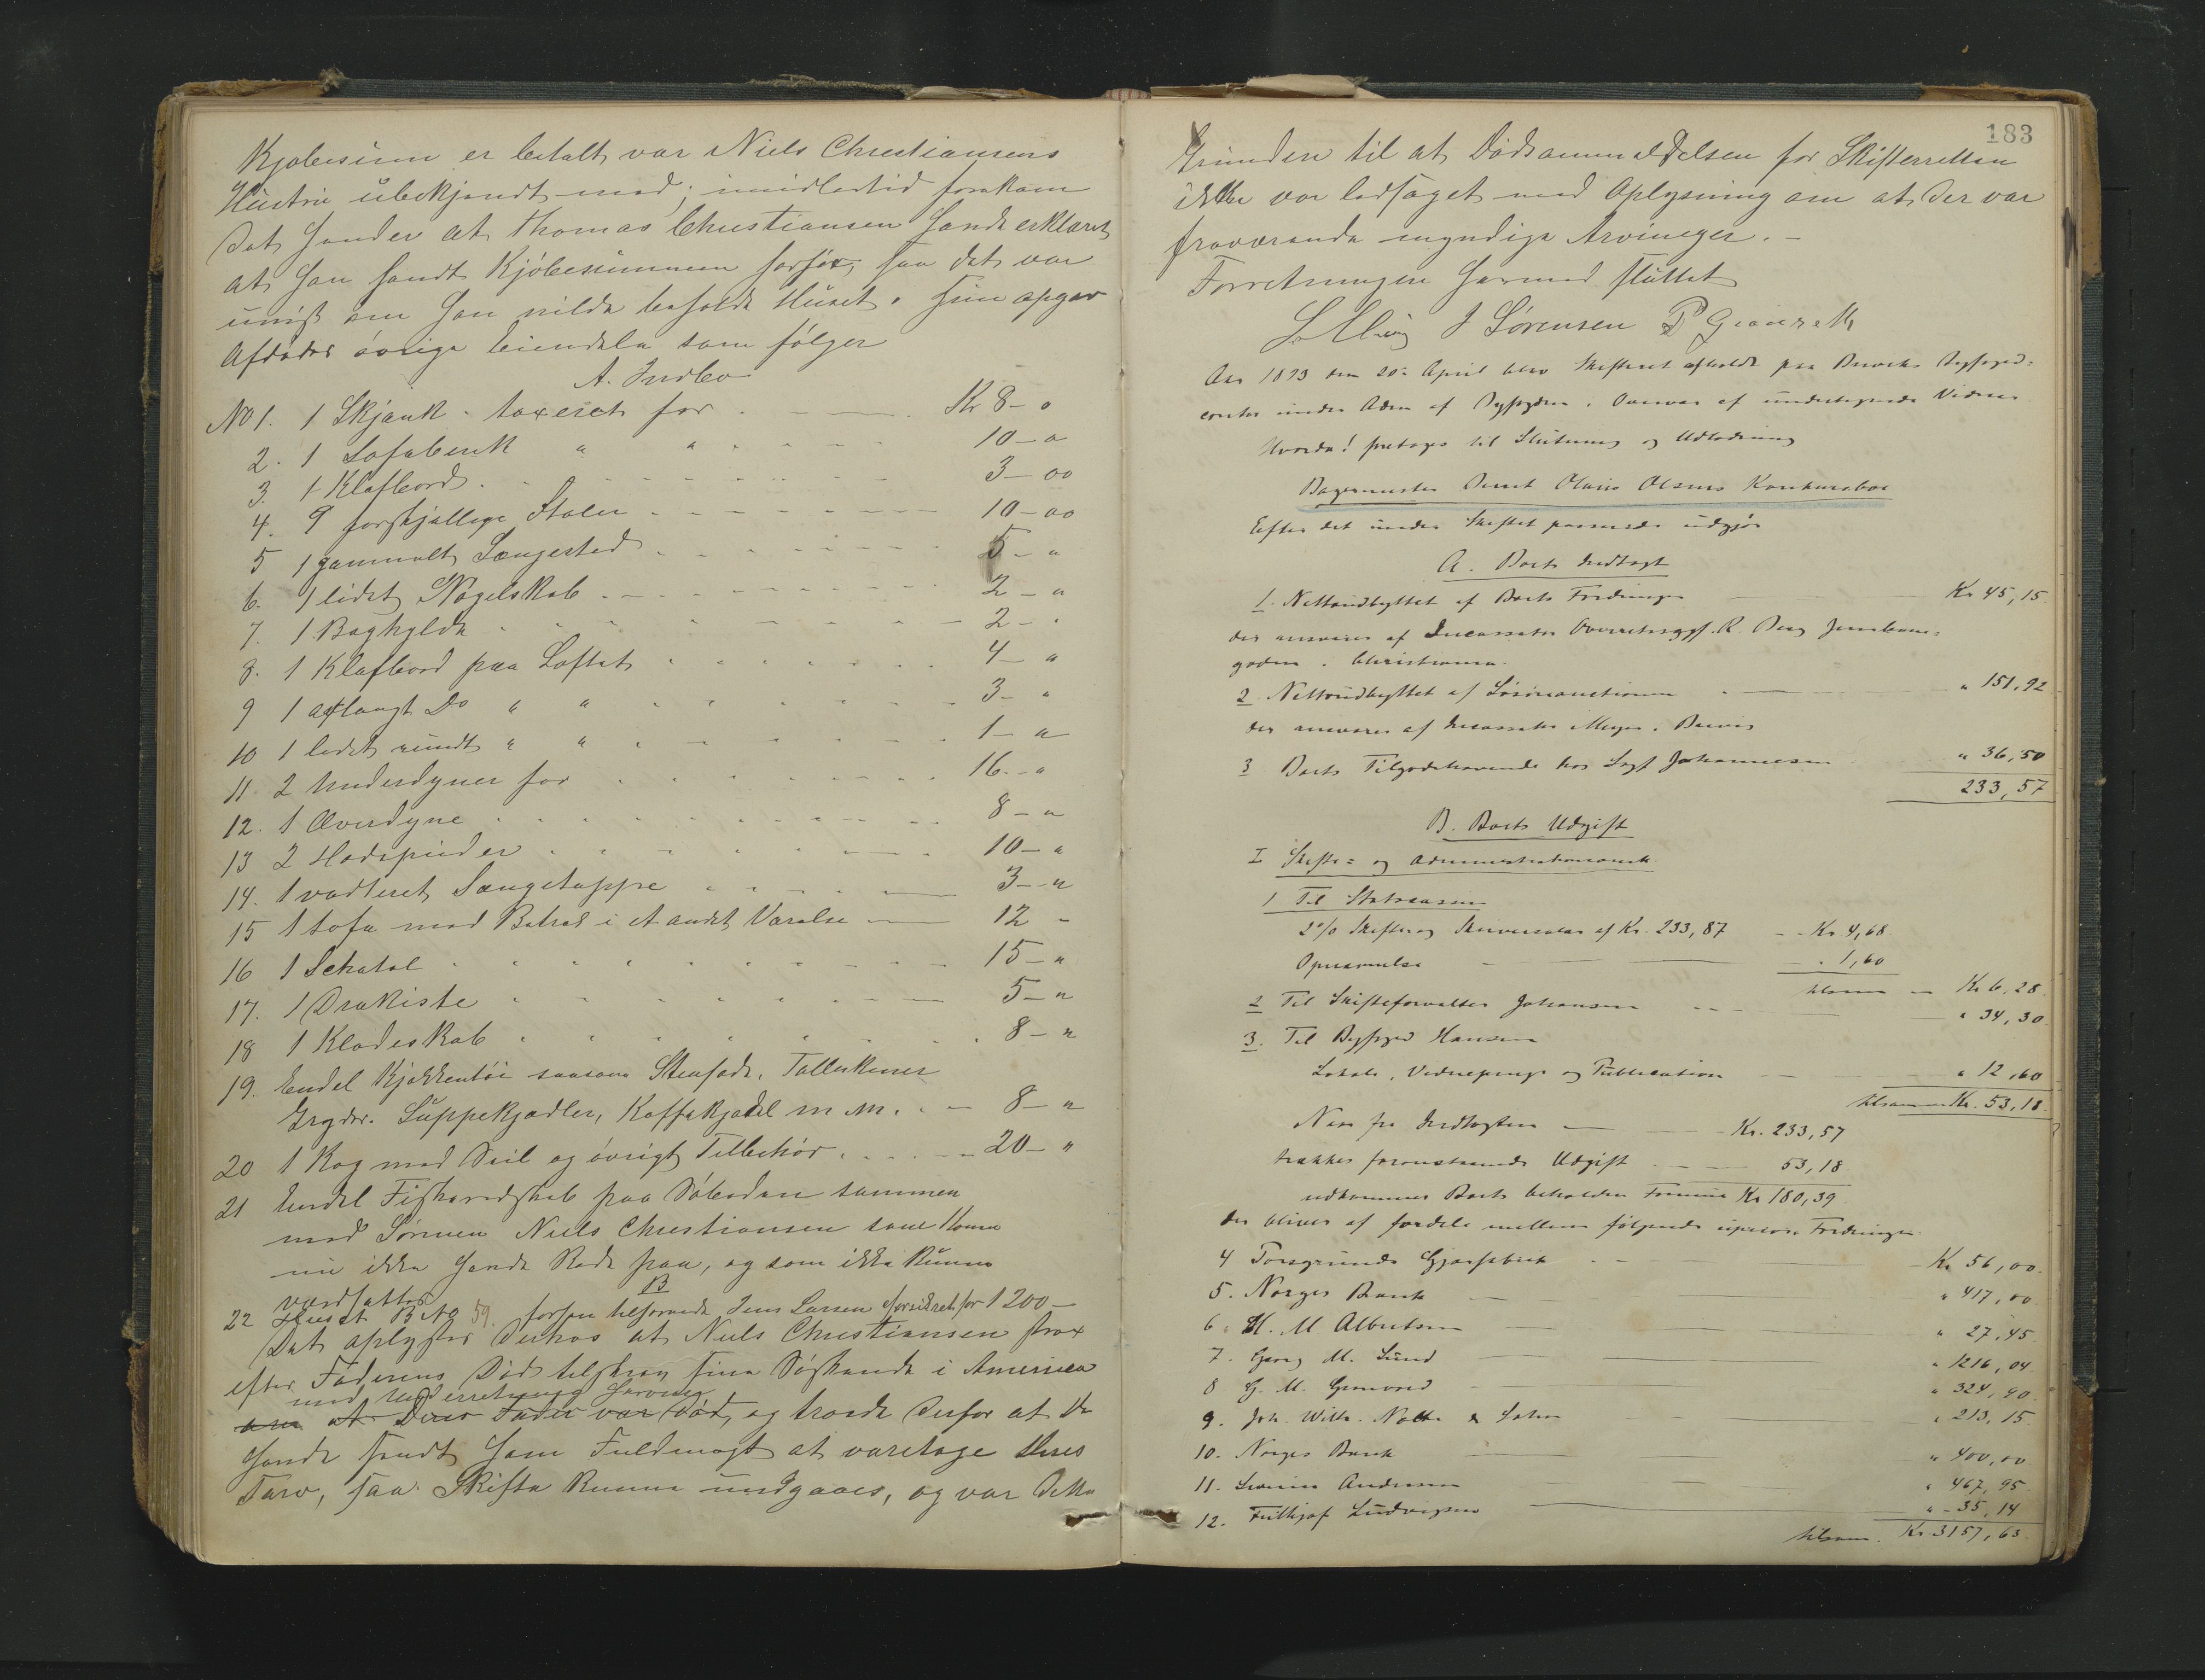 Kjøbesum er betalt var Niels Christiansens
Hustru ubekjendt med; imidlertid forekom
det hende at Thomas Christiansen havde erklæret
at han fandt Kjøbesummen for høi, saa det var
uvist om han vilde beholde Huset. Hun opgav
Afdødes øvrige Eiendele som følger
A. Indbo
No 1. 1 Skjænk taxeret for Kr 8 - "
2. 1 Sofabenk " " 10 - "
3. 1 Klafbord 3 - 00
4. 9 forskjellige Stoler 10 - 00
5 1 gammelt Sengested 5 - "
6. 1 lidet Nøgelskab 2 - "
7. 1 Boghylde 2 - "
8. 1 Klafbord paa Loftet 4 - "
9 1 aflangt Do " " 3 - "
10 1 lidet rundt " " 1 - "
11. 2 Underdyner for 16 - "
12. 1 Overdyne 8 - "
13 2 Hodepuder 10 - "
14. 1 vatteret Sengetæppe 3 - "
15 1 Sofa med Betræk i et andet Værelse 12 -
16 1 Schatol 15 - "
17. 1 Drakiste 5 - "
18 1 Klædeskab 8 - "
19. Endel Kjøkkentøi saasom Stenfade, Tallerkener
Gryder, Suppekjedler, Kaffekjedel m. m. 8 - "
20 1 Kog med Seil og øvrigt Tilbehør 20 - "
21 Endel Fiskeredskab paa Søboden sammen
med Sønnen Niels Christiansen som Konen
nu ikke havde Rede paa, og som ikke kunne
værdsættes
B
22 Huset B No 59. tilhørende Jens Larsen forsikret for 1200 -
Det oplystes derhos at Niels Christiansen strax
efter Faderens Død tilskrev sine Søskende i America
med Underretning herom
om at Deres Fader var død, og troede derfor at de
havde sendt ham Fuldmagt at varetage deres
Tarv, saa Skifte kunne undgaaes, og var dette
183
Grunden til at Dødsanmeldelsen for Skifteretten
ikke var ledsaget med Oplysning om at der var
fraværende myndige Arvinger. -
Forretningen hermed sluttet
J Sørensen P
Aar 1893 den 20de April blev Skifteret afholdt paa Breviks Byfoged-
contor under Adm af Byfogden. Overvær af undertegnede Vidner
Hvorda! foretoges til Slutning og Udlodning
Bagermester Bernt Olaus Olsens Konkursbo
Efter det under Skiftet passerede udgjør
A. Boets Indtægt
1. Nettoudbyttet af Boets Fordringer Kr 45,15
der ansvares af Incassator Overretssagf. R. Berg Jernbane-
gaden i Christiania.
2 Nettoudbyttet af Løsøreauctionen " 151,92
der ansvares af Incassator Meyer, Brevig
3 Boets Tilgodehavende hos Sagf Johannesen " 36,50
233,57
B. Boets Udgift
I Skifte- og Administrationsomk.
1 Til Statscassen
2% Skifte og Skriversalær af Kr. 233,87 Kr 4,68
1,60
tilsammen Kr 6,28
2 Til Skifteforvalter Johansen " 34,30
3. Til Byfoged Hansen
Lokale, Vidnepenge og Publication " 12,60
tilsammen Kr. 53,18
Naar fra Indtægten Kr. 233,57
trækkes foranstaaende Udgift 53,18
udkommer Boets beholdne Formue Kr 180,39
der bliver at fordele mellem følgende uprior. Fordringer
4 Porsgrunds Kr 56,00
5. Norges Bank " 417,00
6. H. M Albertsen " 27,45
7. Georg M. Lund " 1216,04
8 G. M. " 324,90
9. Joh. Wilh. Nolte & Sohn " 213,15
10. Norges Bank " 400,00
11. Andersen " 467,95
12. Frithjof Ludvigsen " 35,14
tilsam. Kr. 3157,63